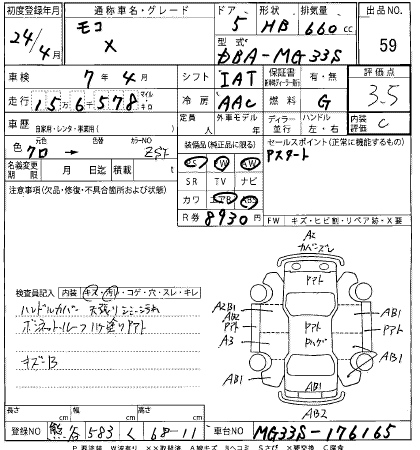 初度登録年月 通称車名・グレード ドア 形状 排気量 出品NO
24/4月 モコ X 5 HB 660cc 59
型式 DBA-MG33S
車検 7年4月 シフト IAT 保証書 有・無 評価点
走行 15万6千578 マイル キロ 冷房 AAC 燃料 G 3.5
車歴 自家用・レンタ・事業用( ) 定員 人 外車モデル 年 ディーラー 並行 ハンドル 左・右 内装評価 C
色 元色 クロ 色替 カラーNO ZST 装備品(純正品に限る) セールスポイント(正常に機能するもの)
PS PW SW Pスタート
名義変更期限 月 日迄 積載 t SR TV ナビ
注意事項(欠品・修復・不具合箇所および状態) カワ エアB ABS
R券 8930円 FW キズ・ヒビ割・リペア跡・X要
A2
カバーズレ
検査員記入 内装 キズ・汚レ・コゲ・穴・スレ・キレ
ハンドルカバー 天張りシミ
ボンネットルーフハケ塗りアト
キズB
アト
A2B1
AB2
アト
A3
アト
AB1
AB1
AB1
AB1
AB1
AB2
長さ cm 幅 cm 高さ cm
登録NO 熊谷 583 く 68-11 車台NO MG33S-176165
P 要塗装 W波有り XX取替済 A線キズ Bヘコミ Sさび X要交換 C腐食